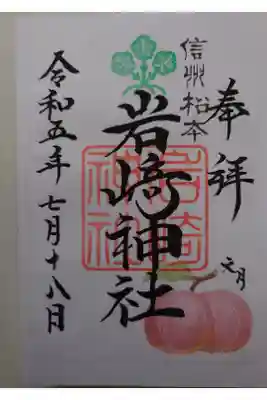 奉拝
文月
信州松本
岩﨑神社
岩崎
神社
令和五年七月十八日